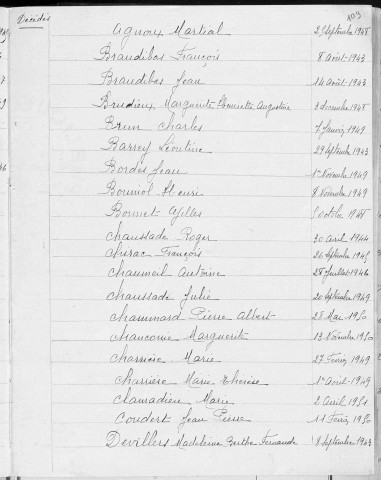 Décédés
103
Agnoux Martial 29 Septembre 1948
Braudibas François 8 Août-1943
Braudibas Jean 14 Août-1943
Brudieux Marguerite Henriette Augustine 3 décembre 1948
Brun Charles 7 Janvier 1949
Barrey Léontine 29 Septembre 1943
Bordes Jean 1er Novembre 1949
Bouniol Henri 8 Novembre 1949
Bonnet Gilles 5 octobre 1948
Chaussade Roger 30 Avril 1944
Chirac François 26 Septembre 1945
Chaumeil Antoine 28 Juillet 1946
Chaussade Julie 20 Septembre 1949
Chaminard Pierre Albert 28 Mai 1950
Chancorme Marguerite 13 Novembre 1950
Charrière Marie 27 Février 1949
Charrière Marie Thérèse 1er Août-1949
Clamadieu Marie 2 Avril 1951
Coudert Jean Pierre 11 Février 1950
Devillers Madeleine Berthe Fernande 8 Septembre 1943